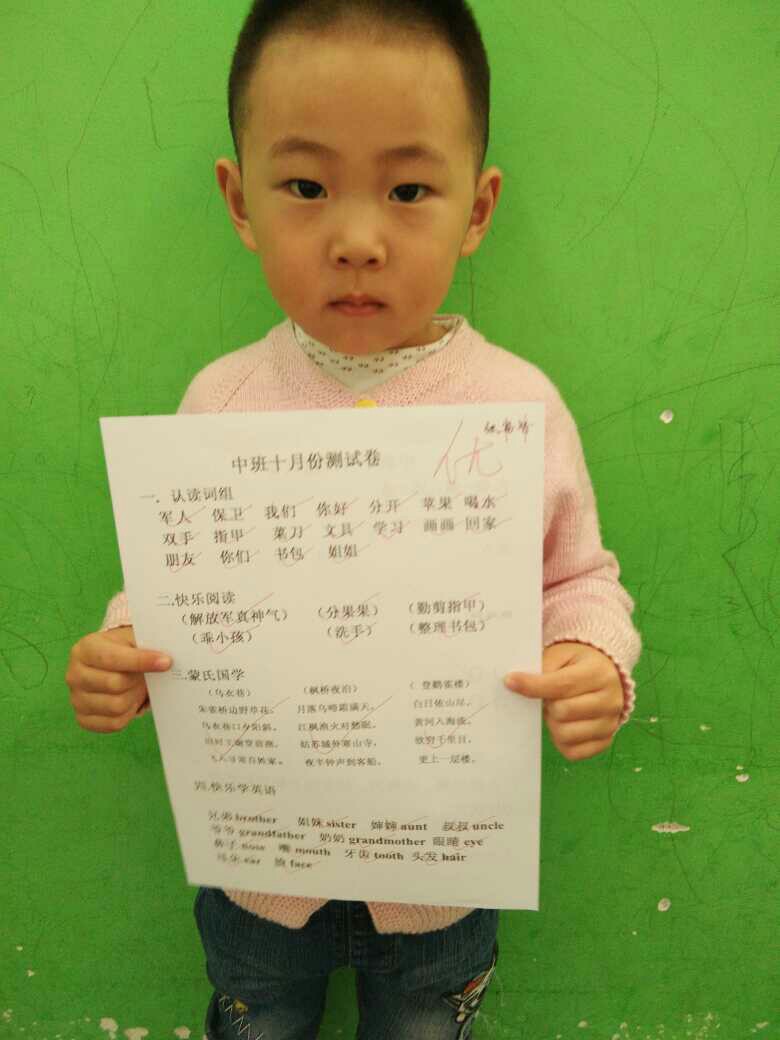 优
中班十月份测试卷
一. 认读词组
军人 保卫 我们 你好 分开 苹果 喝水
双手 指甲 菜刀 文具 学习 画画 回家
朋友 你们 书包 姐姐
二.快乐阅读
（解放军真神气） （分果果） （勤剪指甲）
（乖小孩） （洗手） （整理书包）
三.蒙氏国学
（乌衣巷） （枫桥夜泊） （登鹳雀楼）
朱雀桥边野草花， 月落乌啼霜满天， 白日依山尽，
乌衣巷口夕阳斜。 江枫渔火对愁眠。 黄河入海流。
旧时王谢堂前燕， 姑苏城外寒山寺， 欲穷千里目，
飞入寻常百姓家。 夜半钟声到客船。 更上一层楼。
四.快乐学英语
兄弟 brother 姐妹 sister 婶婶 aunt 叔叔 uncle
爷爷 grandfather 奶奶 grandmother 眼睛 eye
鼻子 nose 嘴 mouth 牙齿 tooth 头发 hair
耳朵 ear 脸 face